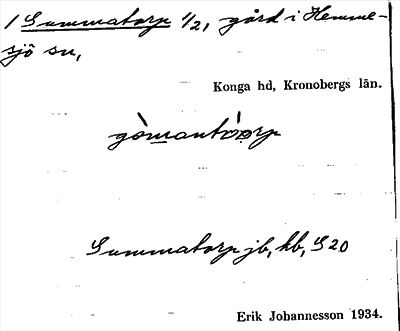 1 Gummatorp 1/2, gård i Hemme-
sjö sn,
Konga hd, Kronobergs län.
Gummatorp jb, kb, G 20
Erik Johannesson 1934.